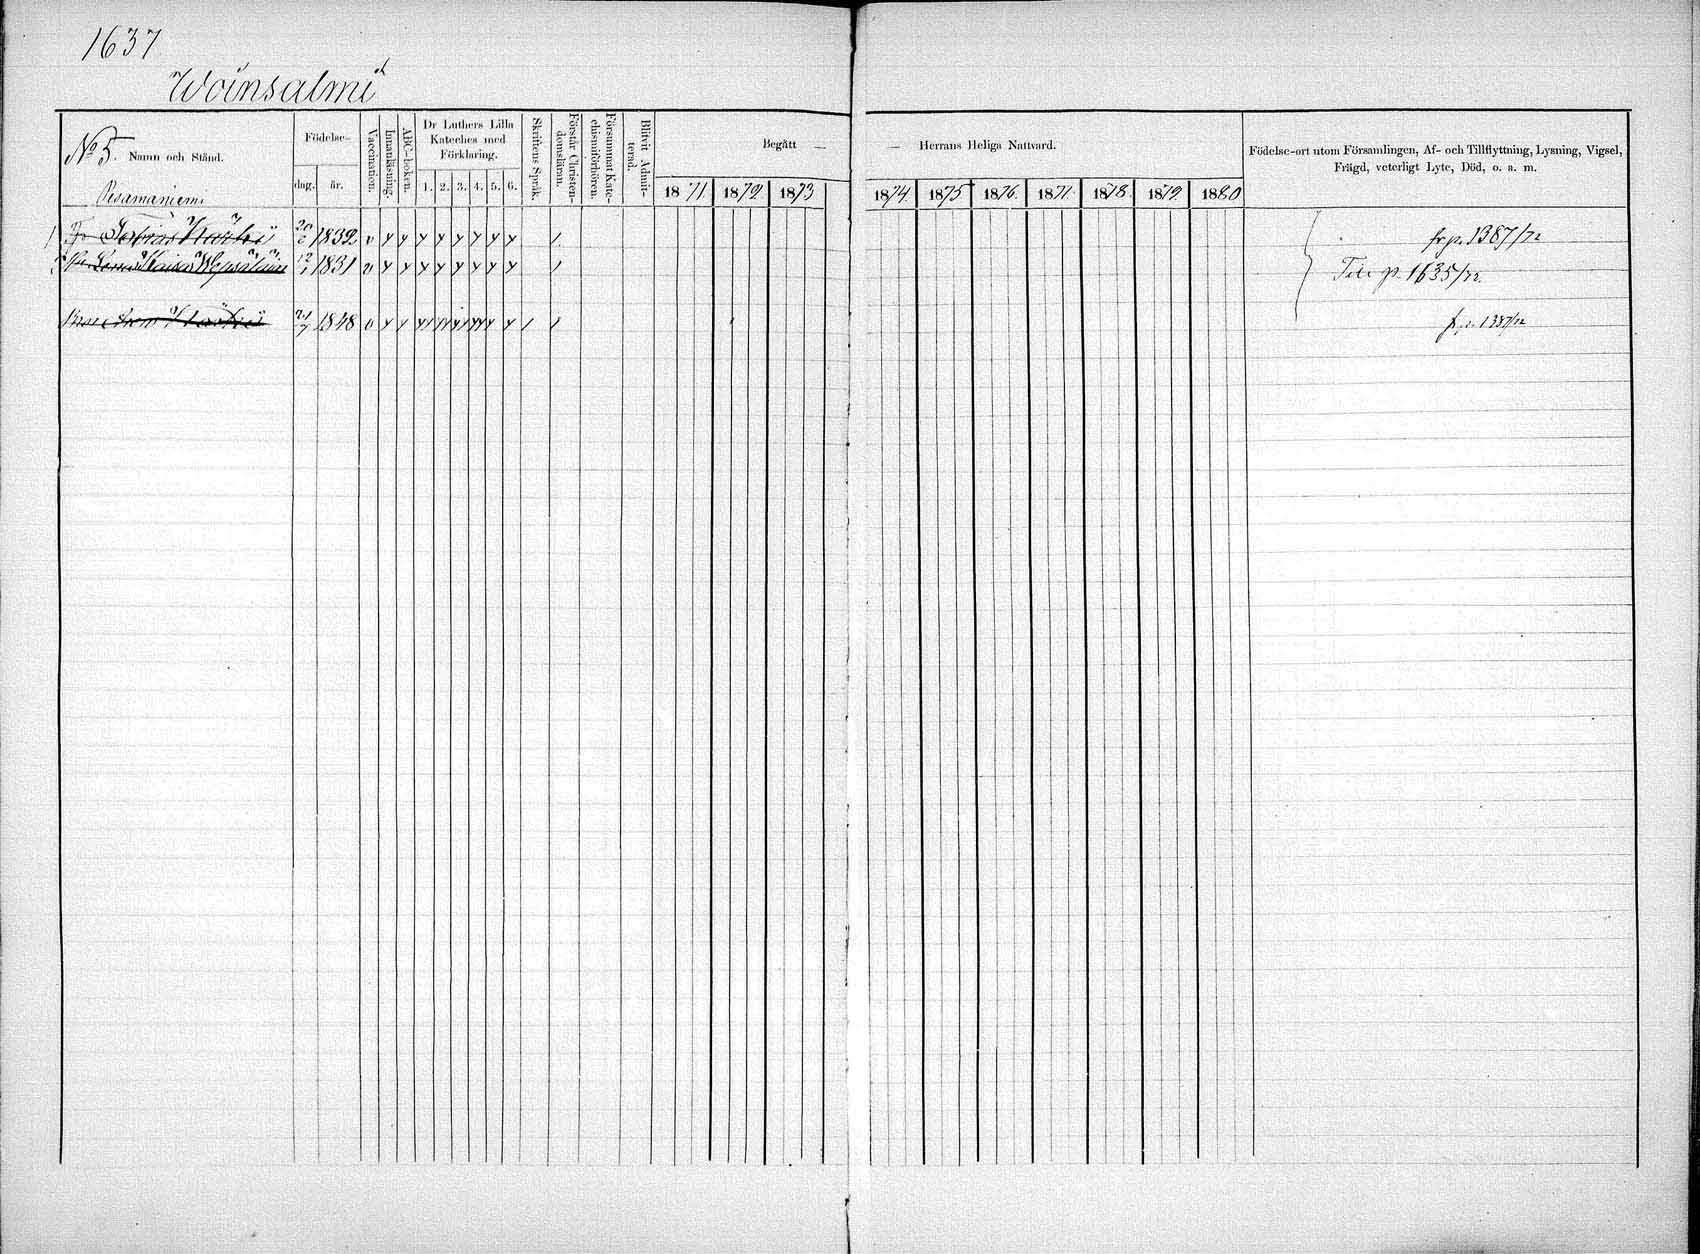 1637
Woinsalmi
No 5. Namn och Stånd.
Pesamaniemi
Födelse-
dag. år.
Vaccination.
Innanläsning.
ABC-boken.
Dr Luthers Lilla Kateches med Förklaring.
1. 2. 3. 4. 5. 6.
Skriftens Språk.
Förstår Christendomsläran.
Försummat Katechismiförhören.
Blivit Admitterad.
Begått — — Herrans Heliga Nattvard.
1871 1872 1873 1874. 1875 1876. 1877. 1878. 1879. 1880
Födelse-ort utom Församlingen, Af- och Tillflyttning, Lysning, Vigsel, Frägd, veterligt Lyte, Död, o. a. m.
Tobias 1832 v fr p. 1387/72
Kaisa 1831 v Till p. 1635/72.
1848 v fr p. 1387/72